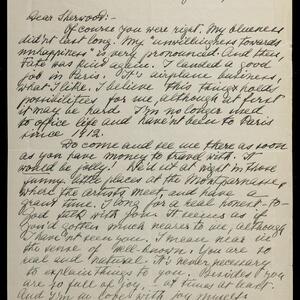 Dear Sherwood:-
Of course you were right. My blueness
didn't last long. My "unwillingness towards
unhappiness" is very pronounced. And then
Fate was kind again. I landed a good
job in Paris. It's airplane business,
what I like. I believe this thing holds
possibilities for me, although at first
it may be hard. I'm no longer used
to office life and haven't been to Paris
since 1912.
Do come and see me there as soon
as you have money to travel with. It
would be jolly! We'd sit at night in those
funny little places at the Montparnasse,
where the artists meet, and have a
grand time. I long for a real honest-to-
God talk with you. It seems as if
you'd gotten much nearer to me, although
I haven't seen you. I mean near in
the sense of well-known. You are so
real and natural. It is never necessary
to explain things to you. Besides you
are so full of joy, at times at least.
And I'm in love with joy